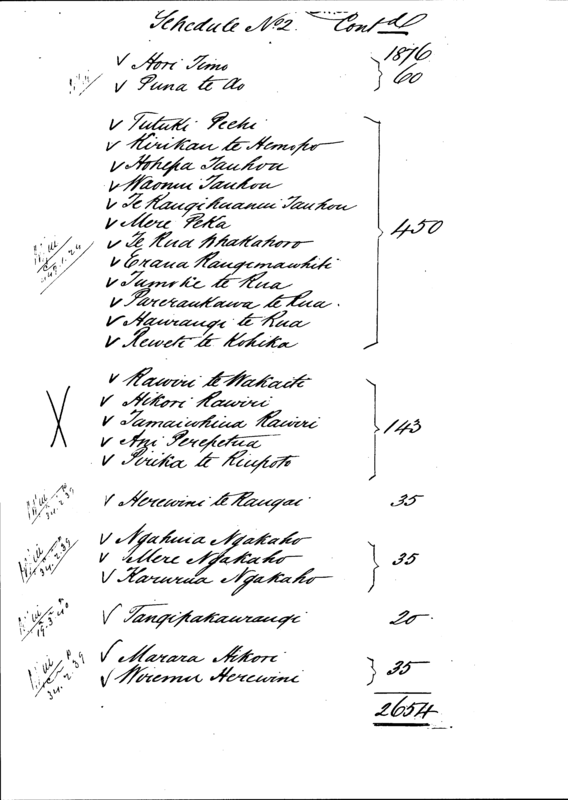 Schedule No 2. Contd
1876
√ Hori Timo
√ Puna te Ao } 60
√ Tutuki Pechi
√ Kirikau te Hemopo
√ Hohepa Tauhou
√ Waonui Tauhou
√ Te Rangihuanui Tauhou
√ Mere Peka } 450
√ Te Rua Whakahoro
√ Eraua Raugimawhiti
√ te Rua
√ Pareraukawa te Rua.
√ Hauraugi te Rua
√ Reweti te Kohika
X
√ Rawiri te Wakaiti
√ Hikori Rawiri
√ Tamaiwhiua Rawiri } 143
√ Ani Perepetua
√ Pirika te Riupoto
√ Herewini te Raugai 35
34.2.39
√ Ngahuia Ngakaho
√ Mere Ngakaho } 35
√ Karurua Ngakaho
34.2.39
√ Tangipakauraugi 20
√ Marara Hikori
√ Wiremu Herewini } 35
34.2.39
2654